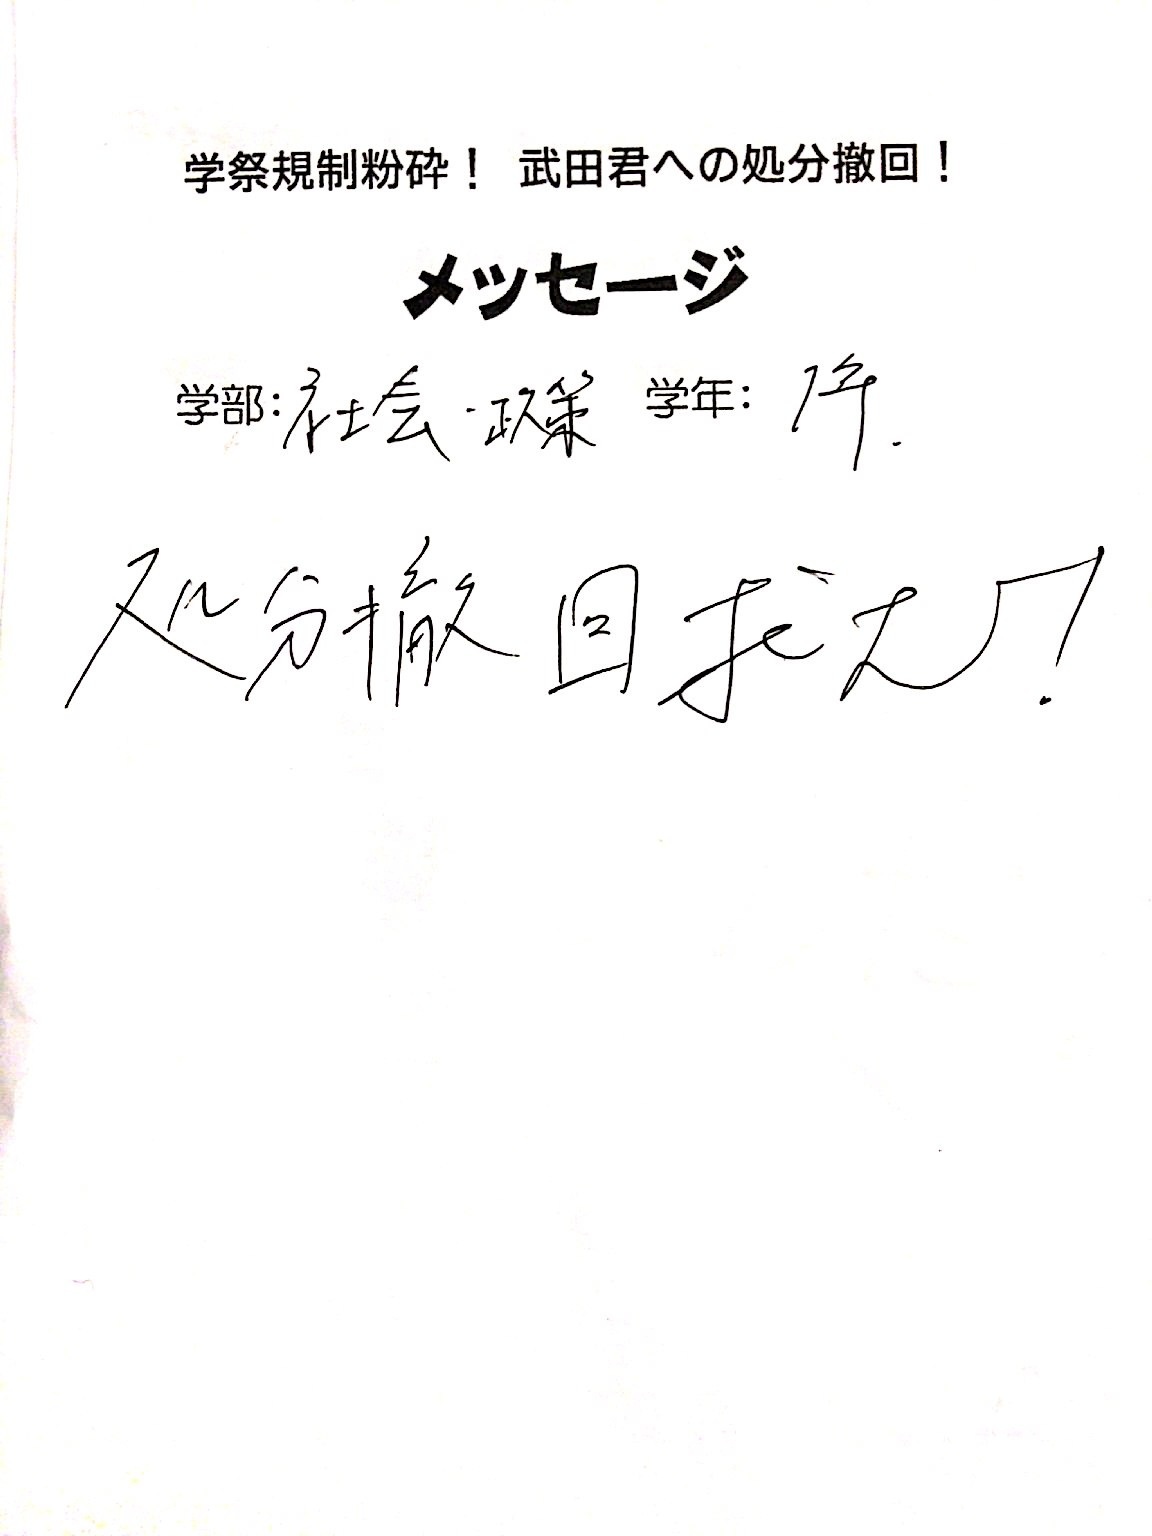 学祭規制粉砕！ 武田君への処分撤回！
メッセージ
学部：社会・政策 学年：1年.
処分撤回求む！